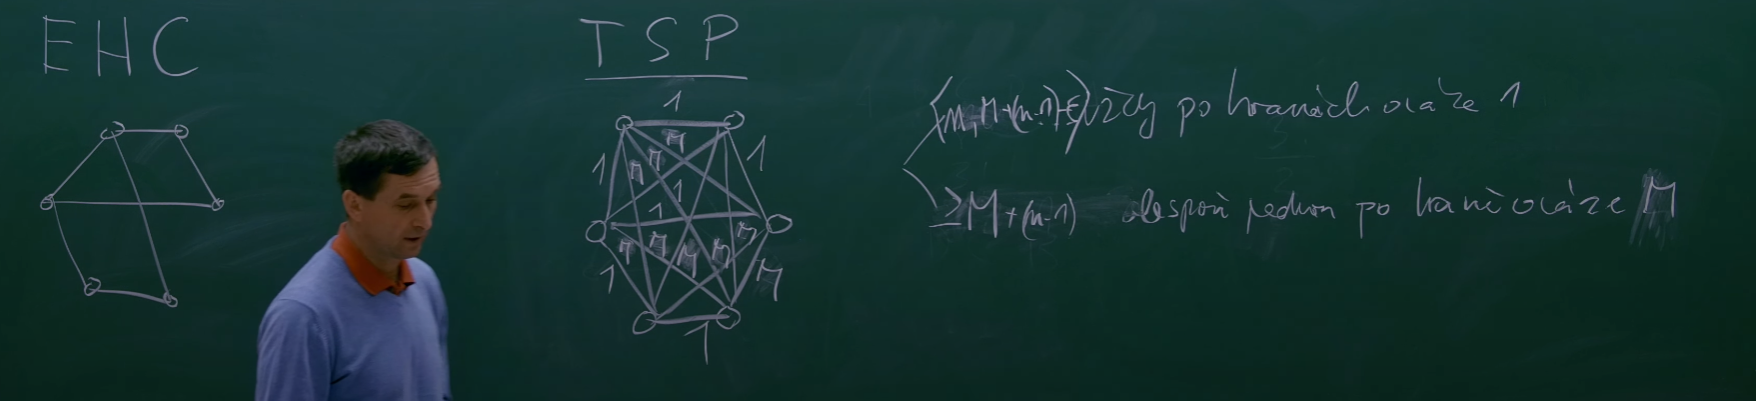 EHC
TSP
1
1
1
M
M
M
1
1
M
M
M
M
M
M
1
1
vždy po hranách váze 1
≥M+(n-1) alespoň jednou po hraně váze M